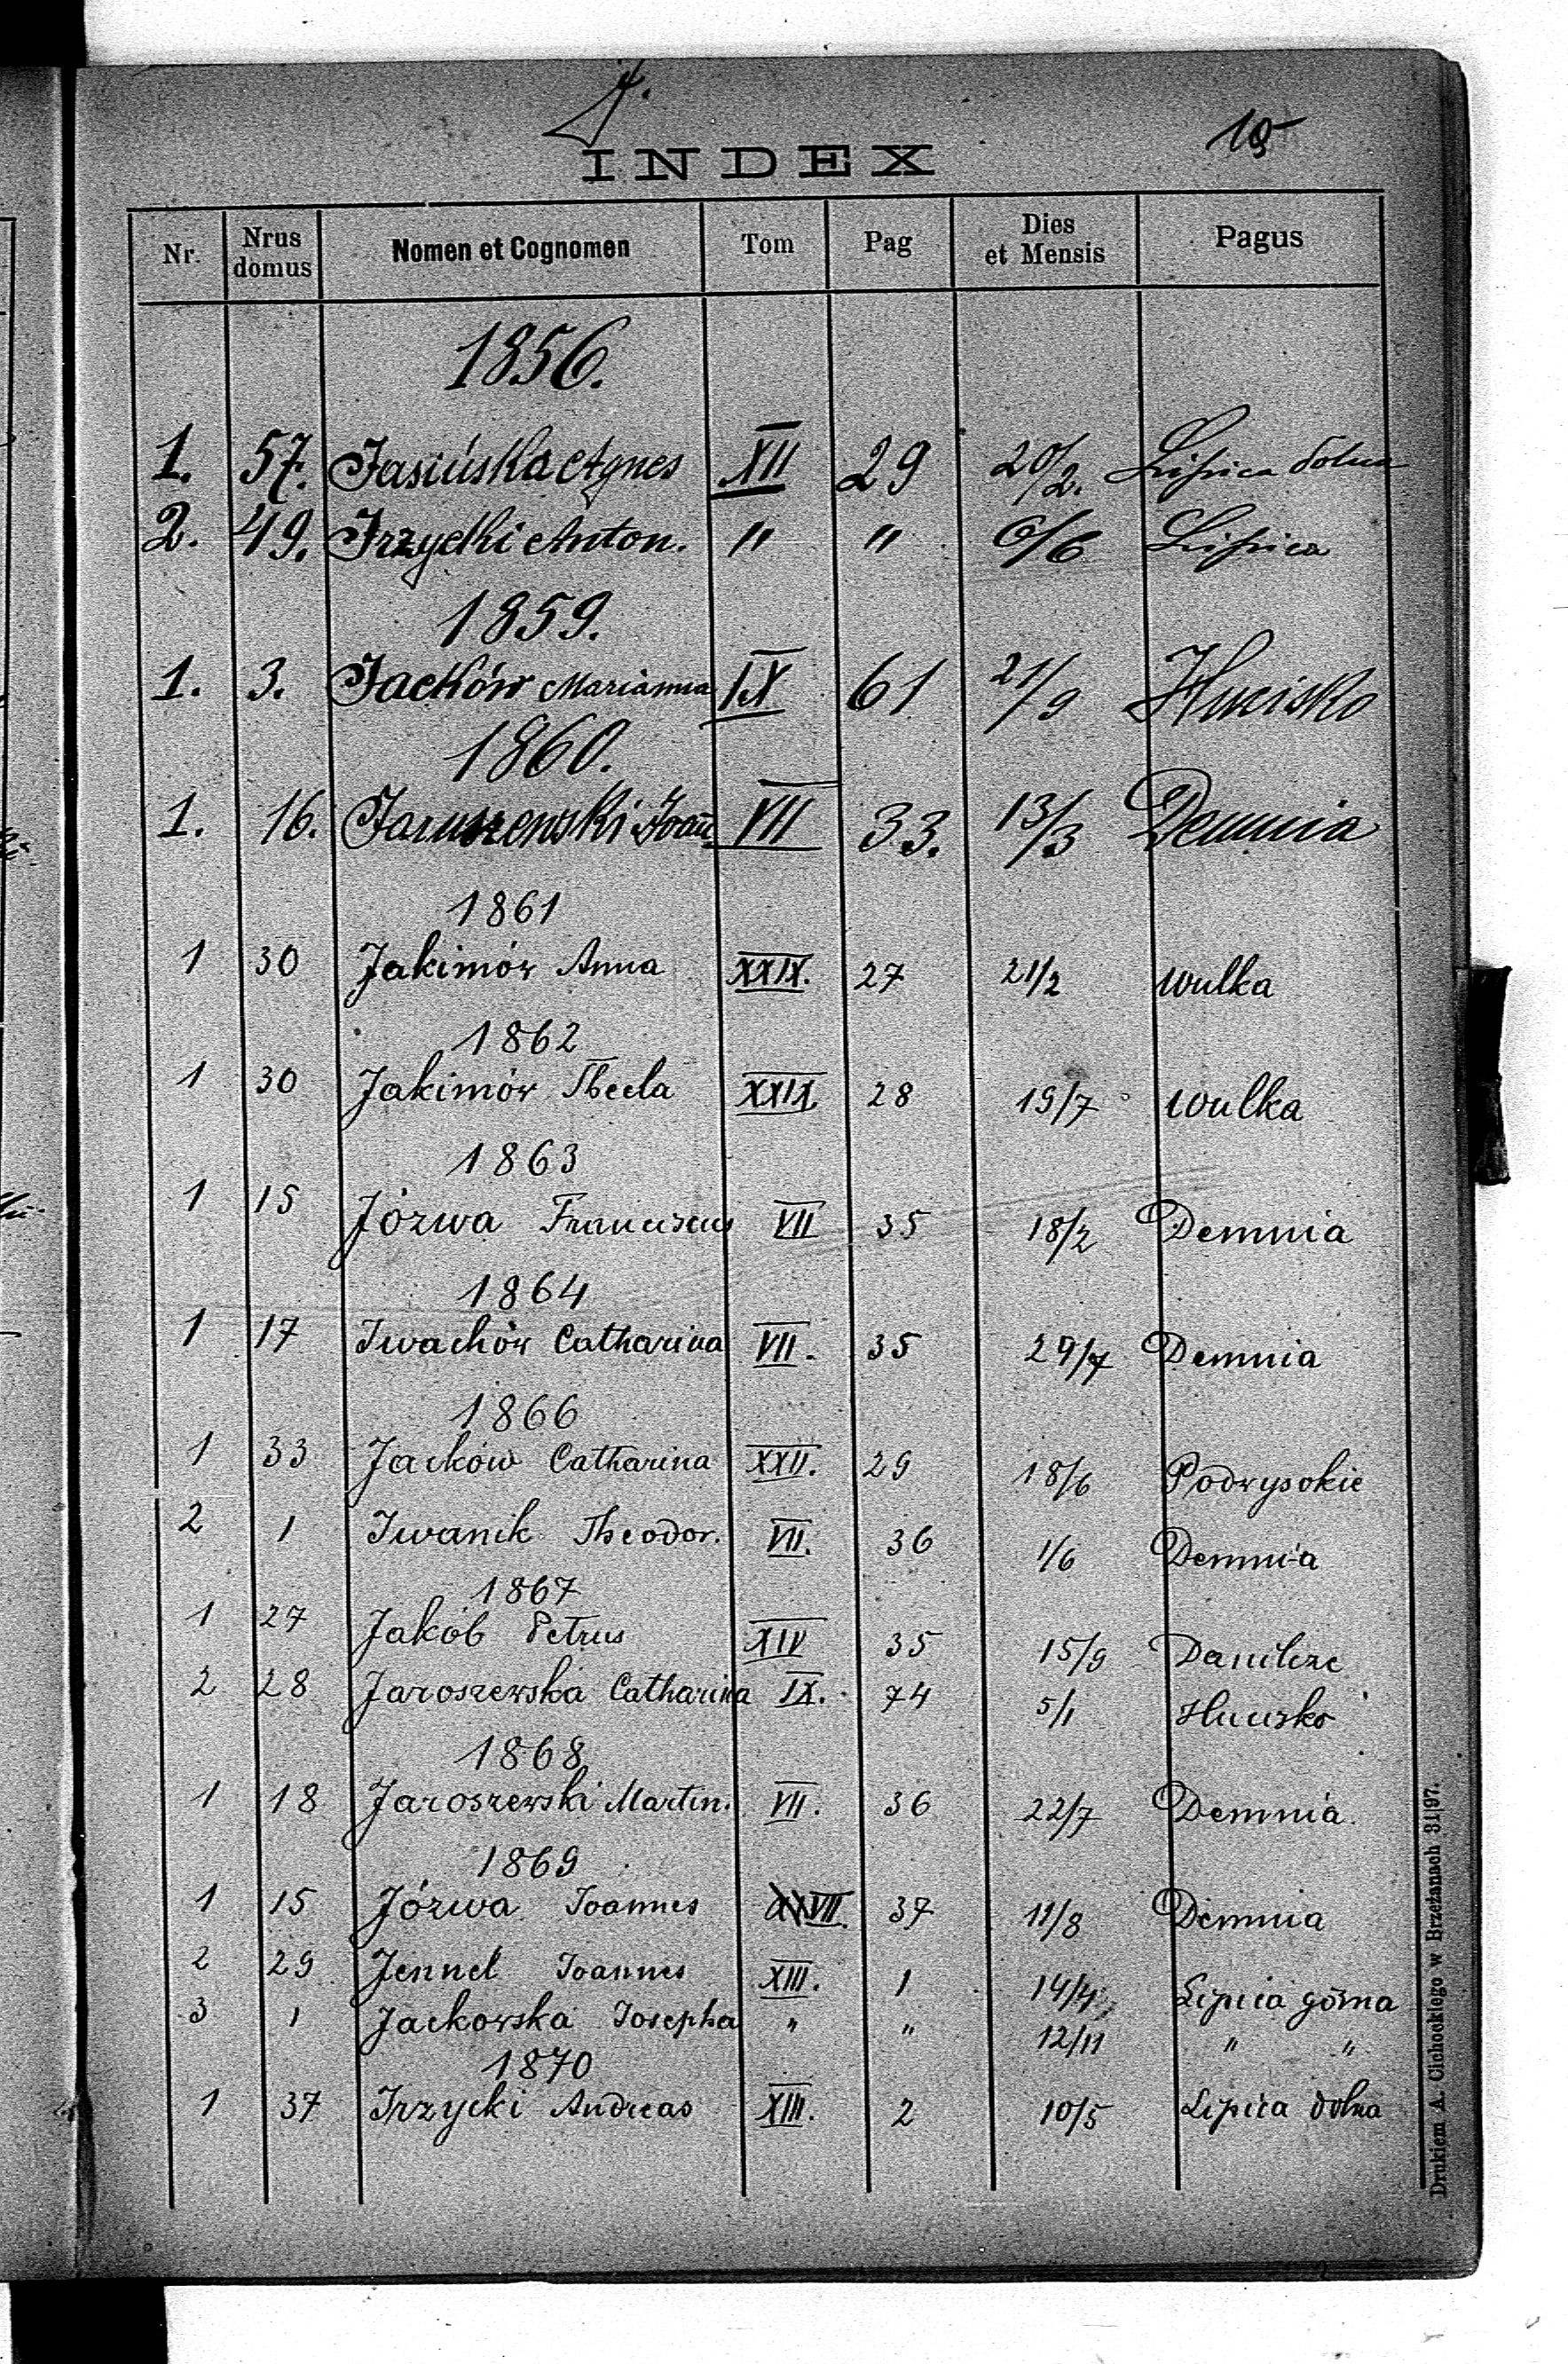 J.
INDEX
Nr. Nrus domus Nomen et Cognomen Tom Pag Dies et Mensis Pagus
1856.
1. 57. Jasińska Agnes XII 29 20/2. Lipica dolna
2. 49. Jrzycki Anton. " " 6/6 Lipica
1859.
1. 3. Jacków Marianna IX 61 21/9 Hucisko
1860.
1. 16. Jaruszewski Joan. VII 33. 13/3 Demnia
1861
1 30 Jakimów Anna XXIX. 27 21/2 Wulka
1862
1 30 Jakimów Thecla XXIX 28 19/7 Wulka
1863
1 15 Józwa Franciscus VII 35 18/2 Demnia
1864
1 17 Iwachów Catharina VII. 35 29/7 Demnia
1866
1 33 Jacków Catharina XXII. 29 18/6 Podwysokie
2 1 Iwanik Theodor. VII. 36 1/6 Demnia
1867
1 27 Jakób Petrus XIV 35 15/9 Danilcze
2 28 Jaroszewska Catharina IX. 74 5/1 Hucisko
1868
1 18 Jaroszewski Martin. VII. 36 22/7 Demnia.
1869
1 15 Józwa Joannes VII. 37 11/8 Demnia
2 29 Jennel Joannes XIII. 1 14/4 Lipica górna
3 1 Jackowska Josepha " " 12/11 " "
1870
1 37 Jrzycki Andreas XIII. 2 10/5 Lipica dolna
Drukiem A. Cichockiego w Brzeżanach 31|97.